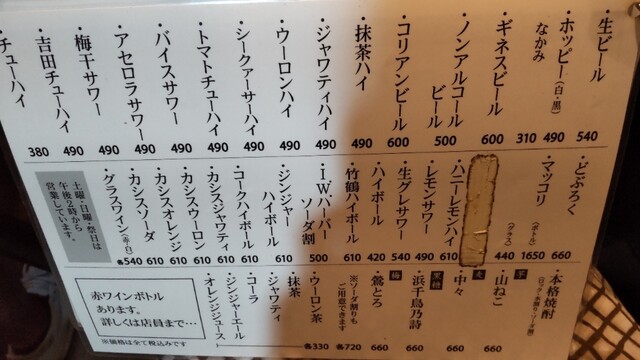 ・生ビール 540
・ホッピー(白・黒) 490
なかみ 310
・ギネスビール 600
・ノンアルコール
ビール 500
・コリアンビール 600
・抹茶ハイ 490
・ジャワティハイ 490
・ウーロンハイ 490
・シークァーサーハイ 490
・トマトチューハイ 490
・バイスサワー 490
・アセロラサワー 490
・梅干サワー 490
・吉田チューハイ 490
チューハイ 380
・どぶろく 660
・マッコリ (ボトル) 1650
(グラス) 440
・ハニーレモンハイ 610
・レモンサワー 490
・生グレサワー 540
・ハイボール 420
・竹鶴ハイボール 610
・I.W.ハーパー
ソーダ割 500
・ジンジャー
ハイボール 610
・コークハイボール 610
・カシスジャワティ 610
・カシスウーロン 610
・カシスオレンジ 610
・カシスソーダ 610
・グラスワイン(赤・白) 各540
土曜・日曜・祭日は
午後2時から
営業しています。
・本格焼酎
芋 ・山ねこ 660
麦 ・中々 660
黒糖 ・浜千鳥乃詩 660
梅 ・鶯とろ 各720
※ソーダ割りも
ご用意できます
・ウーロン茶 各330
・抹茶
・ジャワティ
・コーラ
・ジンジャーエール
・オレンジジュース
赤ワインボトル
あります。
詳しくは店員まで…
※価格は全て税込みです